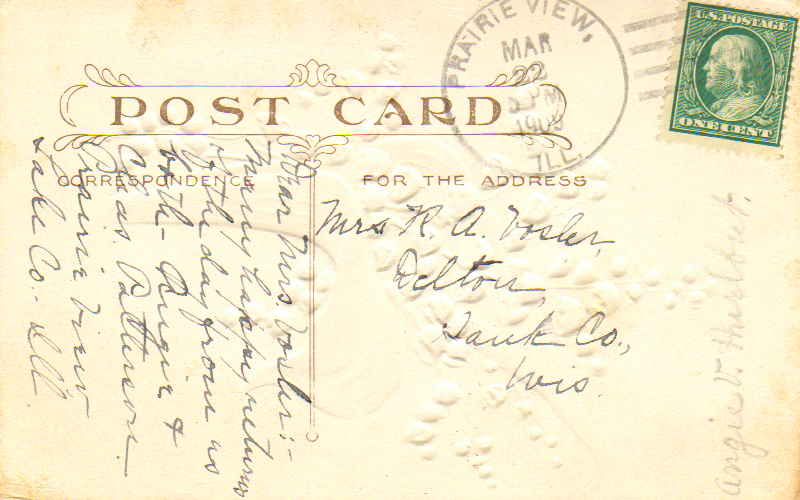 POST CARD
CORRESPONDENCE
FOR THE ADDRESS
PRAIRIE VIEW,
MAR
PM
1909
ILL.
U.S. POSTAGE
ONE CENT
Dear Mrs Vosler:-
Many happy returns
of the day from us
both - Angie &
Chas. Patterson.
Prairie View
Lake Co. - Ill.
Mrs R. A. Vosler,
Delton,
Sauk Co.,
Wis.
Angie V. Hurlbut.